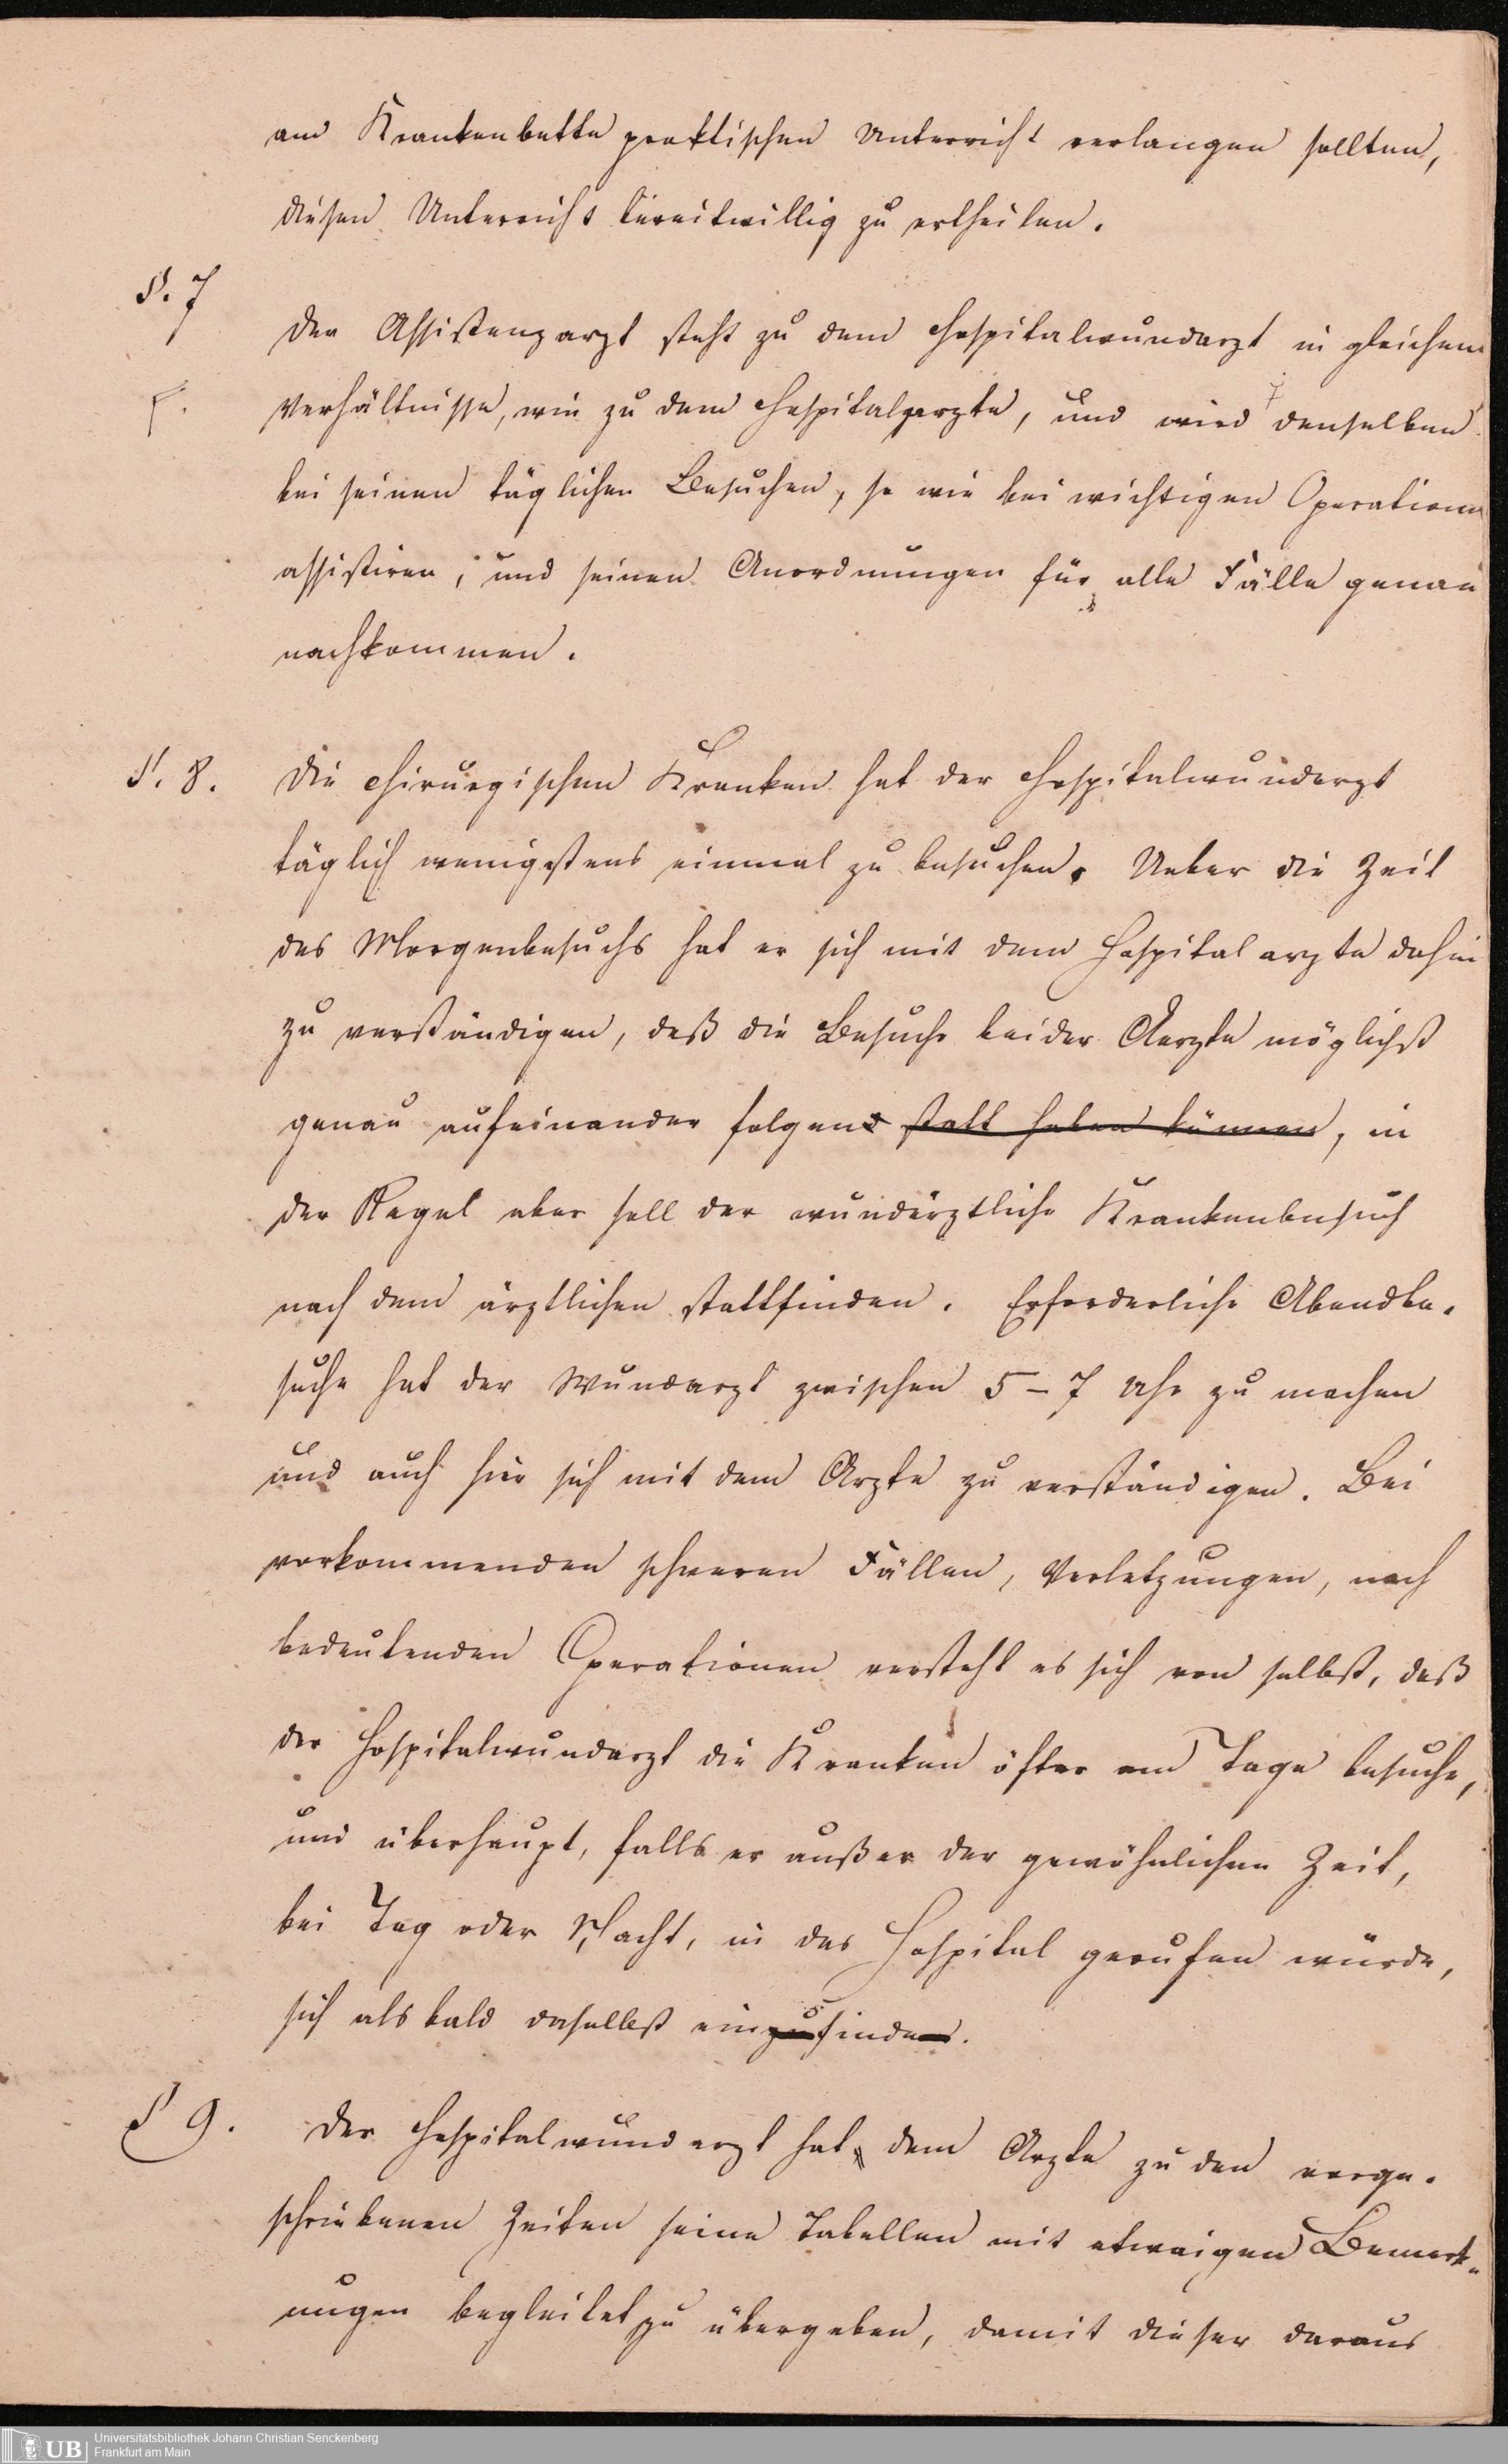 am Krankenbette praktischen Unterricht verlangen sollten,
diesen Unterricht bereitwillig zu ertheilen.
§. 7
Der Assistenzarzt steht zu dem Hospitalwundarzt in gleichem
Γ.
Verhältnisse, wie zu dem Hospitalarzte, und wird denselben
bei seinen täglichen Besuchen, so wie bei wichtigen Operationen
assistiren, und seinen Anordnungen für alle Fälle genau
nachkommen.
§. 8.
Die chirurgischen Kranken hat der Hospitalwundarzt
täglich wenigstens einmal zu besuchen. Ueber die Zeit
des Morgenbesuchs hat er sich mit dem Hospitalarzte dahin
zu verständigen, daß die Besuche beider Aerzte möglichst
genau aufeinander folgend statt haben können, in
der Regel aber soll der wundärztliche Krankenbesuch
nach dem ärztlichen stattfinden. Erforderliche Abendbe-
suche hat der Wundarzt zwischen 5–7 Uhr zu machen
und auch hier sich mit dem Arzte zu verständigen. Bei
vorkommenden schweren Fällen, Verletzungen, nach
bedeutenden Operationen versteht es sich von selbst, daß
der Hospitalwundarzt die Kranken öfter am Tage besuche,
und überhaupt, falls er außer der gewöhnlichen Zeit,
bei Tag oder Nacht, in das Hospital gerufen würde,
sich alsbald daselbst einzufinden.
§ 9.
Der Hospitalwundarzt hat dem Arzte zu den vorge-
schriebenen Zeiten seine Tabellen mit etwaigen Bemerk-
ungen begleitet zu übergeben, damit dieser daraus
UB
Universitätsbibliothek Johann Christian Senckenberg
Frankfurt am Main